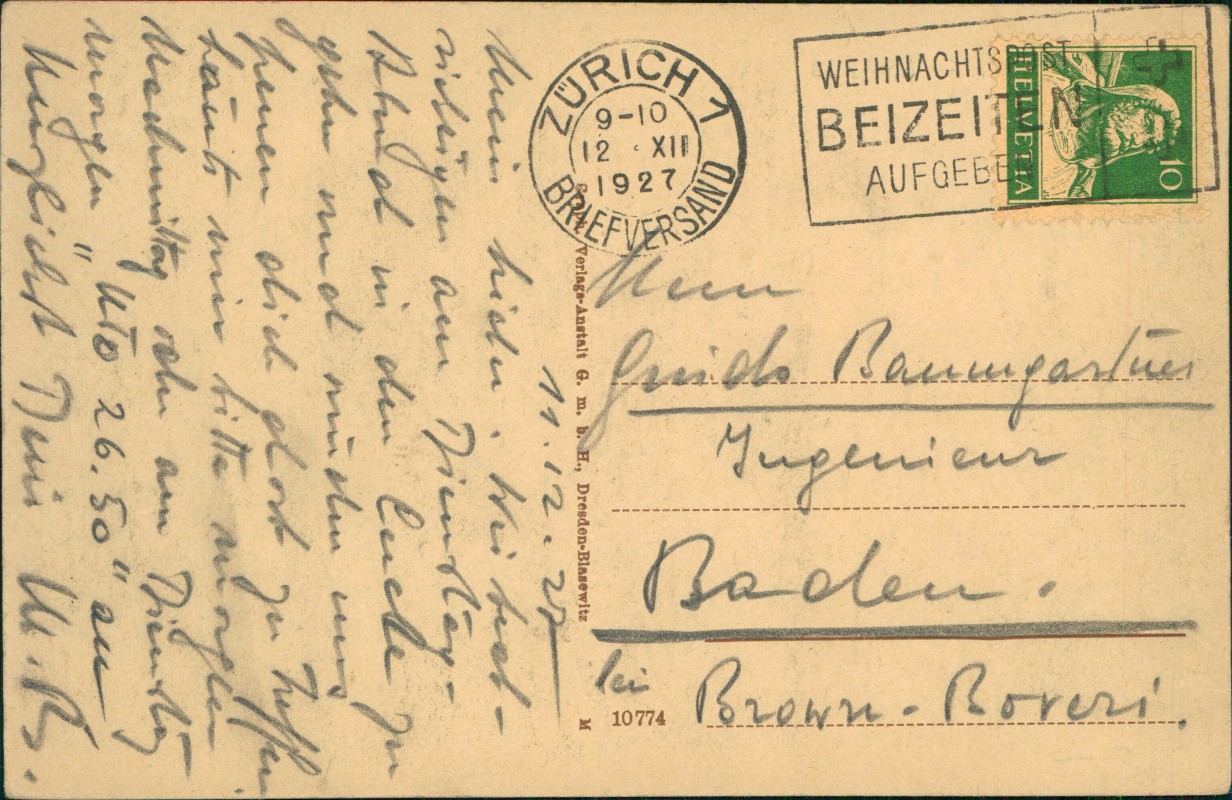 ZÜRICH 1
9-10
12 · XII
1927
BRIEFVERSAND
WEIHNACHTSPOST
BEIZEITEN
AUFGEBEN
HELVETIA
10
Herrn
Guido Baumgartner
Ingenieur
Baden.
bei Brown-Boveri.
Verlags-Anstalt G. m. b. H., Dresden-Blasewitz
M 10774
11.12.27
Mein lieber, wir beab-
sichtigen am Dienstag-
Abend in den zu
gehn und würden uns
freuen dich dort zu treffen.
Läut mir bitte morgen
Nachmittag oder am Dienstag
morgen "Uto 26.50" an
Herzlichst Dein